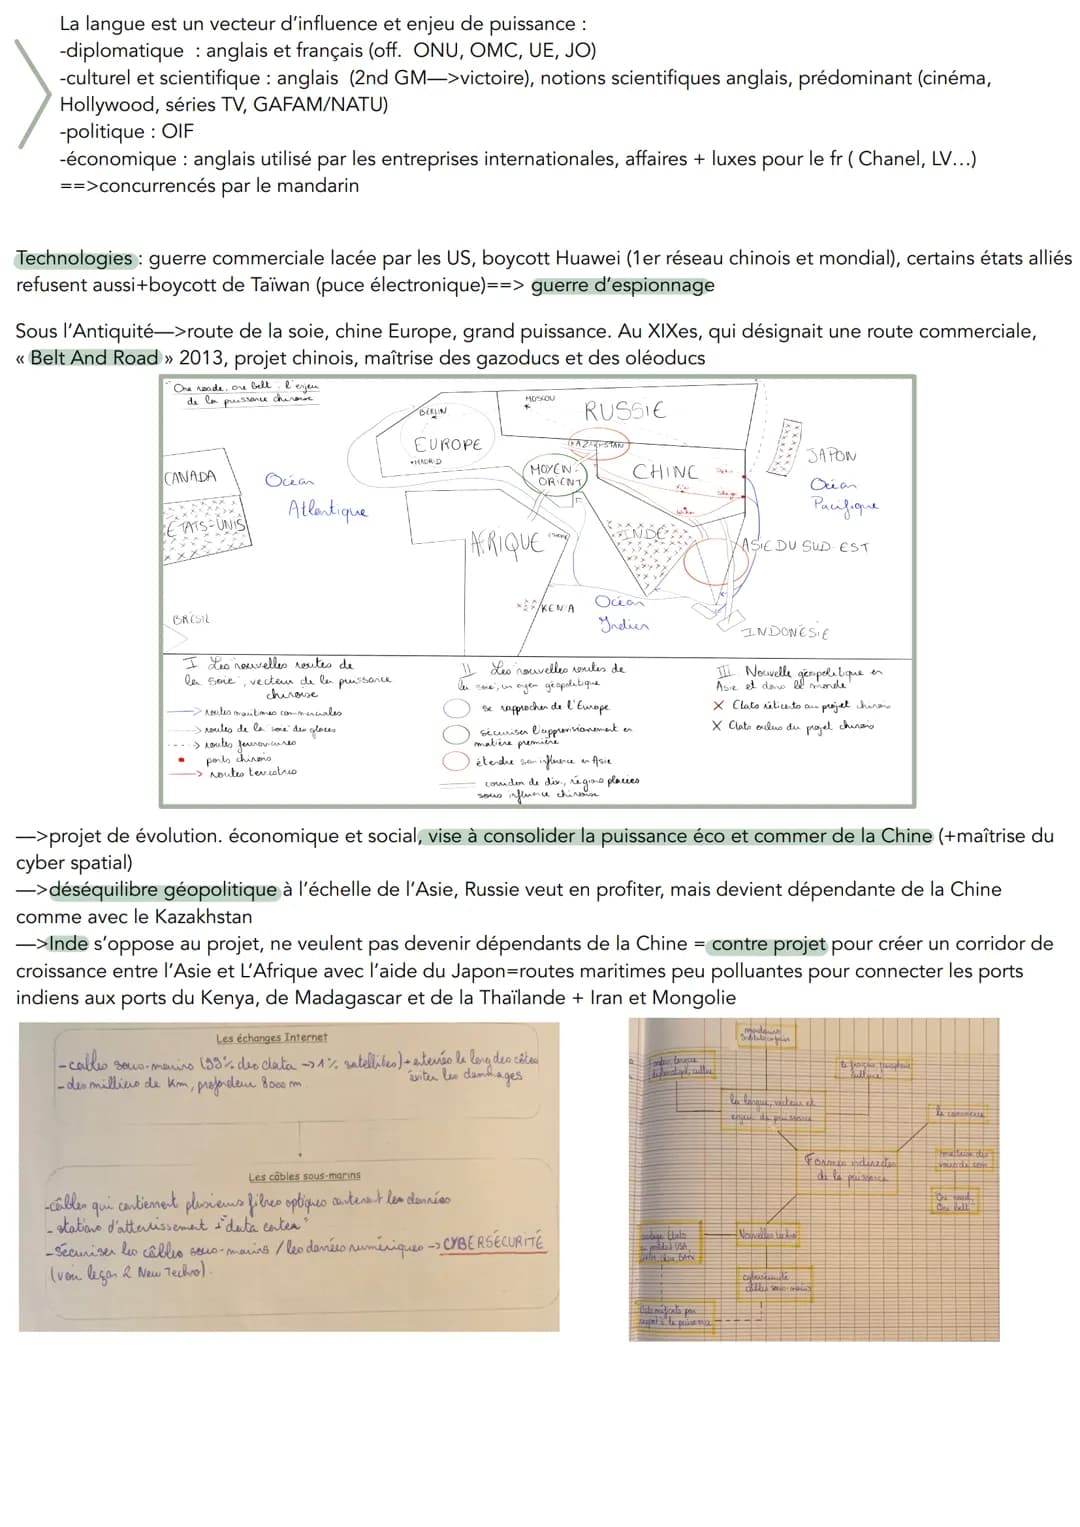 La langue est un vecteur d'influence et enjeu de puissance :
-diplomatique : anglais et français (off. ONU, OMC, UE, JO)
-culturel et scientifique : anglais (2nd GM—>victoire), notions scientifiques anglais, prédominant (cinéma,
Hollywood, séries TV, GAFAM/NATU)
-politique : OIF
-économique : anglais utilisé par les entreprises internationales, affaires + luxes pour le fr ( Chanel, LV...)
==>concurrencés par le mandarin
Technologies : guerre commerciale lacée par les US, boycott Huawei (1er réseau chinois et mondial), certains états alliés
refusent aussi+boycott de Taïwan (puce électronique)==> guerre d'espionnage
Sous l'Antiquité—>route de la soie, chine Europe, grand puissance. Au XIXes, qui désignait une route commerciale,
« Belt And Road » 2013, projet chinois, maîtrise des gazoducs et des oléoducs
One roade, one belt : l'enjeu
de la puissance chinoise
BERLIN
MOSCOU
RUSSIE
EUROPE
MADRID
KAZAKHSTAN
MOYEN-
ORIENT
CHINE
JAPON
CANADA
Océan
Atlantique
Océan
Pacifique
ETATS-UNIS
AFRIQUE
INDE
ASIE DU SUD EST
KENYA
Océan
Indien
BRÉSIL
INDONÉSIE
I Les nouvelles routes de
la soie, vecteur de la puissance
chinoise
routes maritimes commerciales
routes de la soie des glaces
routes ferroviaires
ports chinois
routes terrestres
II Les nouvelles routes de
la soie, un moyen géopolitique
se rapprocher de l'Europe
sécuriser l'approvisionnement en
matière première
étendre son influence en Asie
corridor de dev, régions placées
sous influence chinoise
III Nouvelle géopolitique en
Asie et dans le monde
X Etats réticents au projet chinois
X Etats exclus du projet chinois
—>projet de évolution. économique et social, vise à consolider la puissance éco et commer de la Chine (+maîtrise du
cyber spatial)
—>déséquilibre géopolitique à l'échelle de l'Asie, Russie veut en profiter, mais devient dépendante de la Chine
comme avec le Kazakhstan
—>Inde s'oppose au projet, ne veulent pas devenir dépendants de la Chine = contre projet pour créer un corridor de
croissance entre l'Asie et L'Afrique avec l'aide du Japon=routes maritimes peu polluantes pour connecter les ports
indiens aux ports du Kenya, de Madagascar et de la Thaïlande + Iran et Mongolie
Les échanges Internet
-câbles sous-marins (99% des data -> 1% satellites) + enterrés le long des côtes
éviter les dommages
- des milliers de Km, profondeur 8000 m
Les câbles sous-marins
-câbles qui contiennent plusieurs fibres optiques contenant les données
- stations d'atterrissement + "data center"
-sécuriser les câbles sous-marins / les données numériques -> CYBERSÉCURITÉ
(voir leçon 2 New Techno).
la langue, vecteur et
enjeu de puissance
le commerce
Formes indirectes
de la puissance
maîtrise des
voies de com
One road,
One belt
Nouvelles techno
cybersécurité
câbles sous-marins